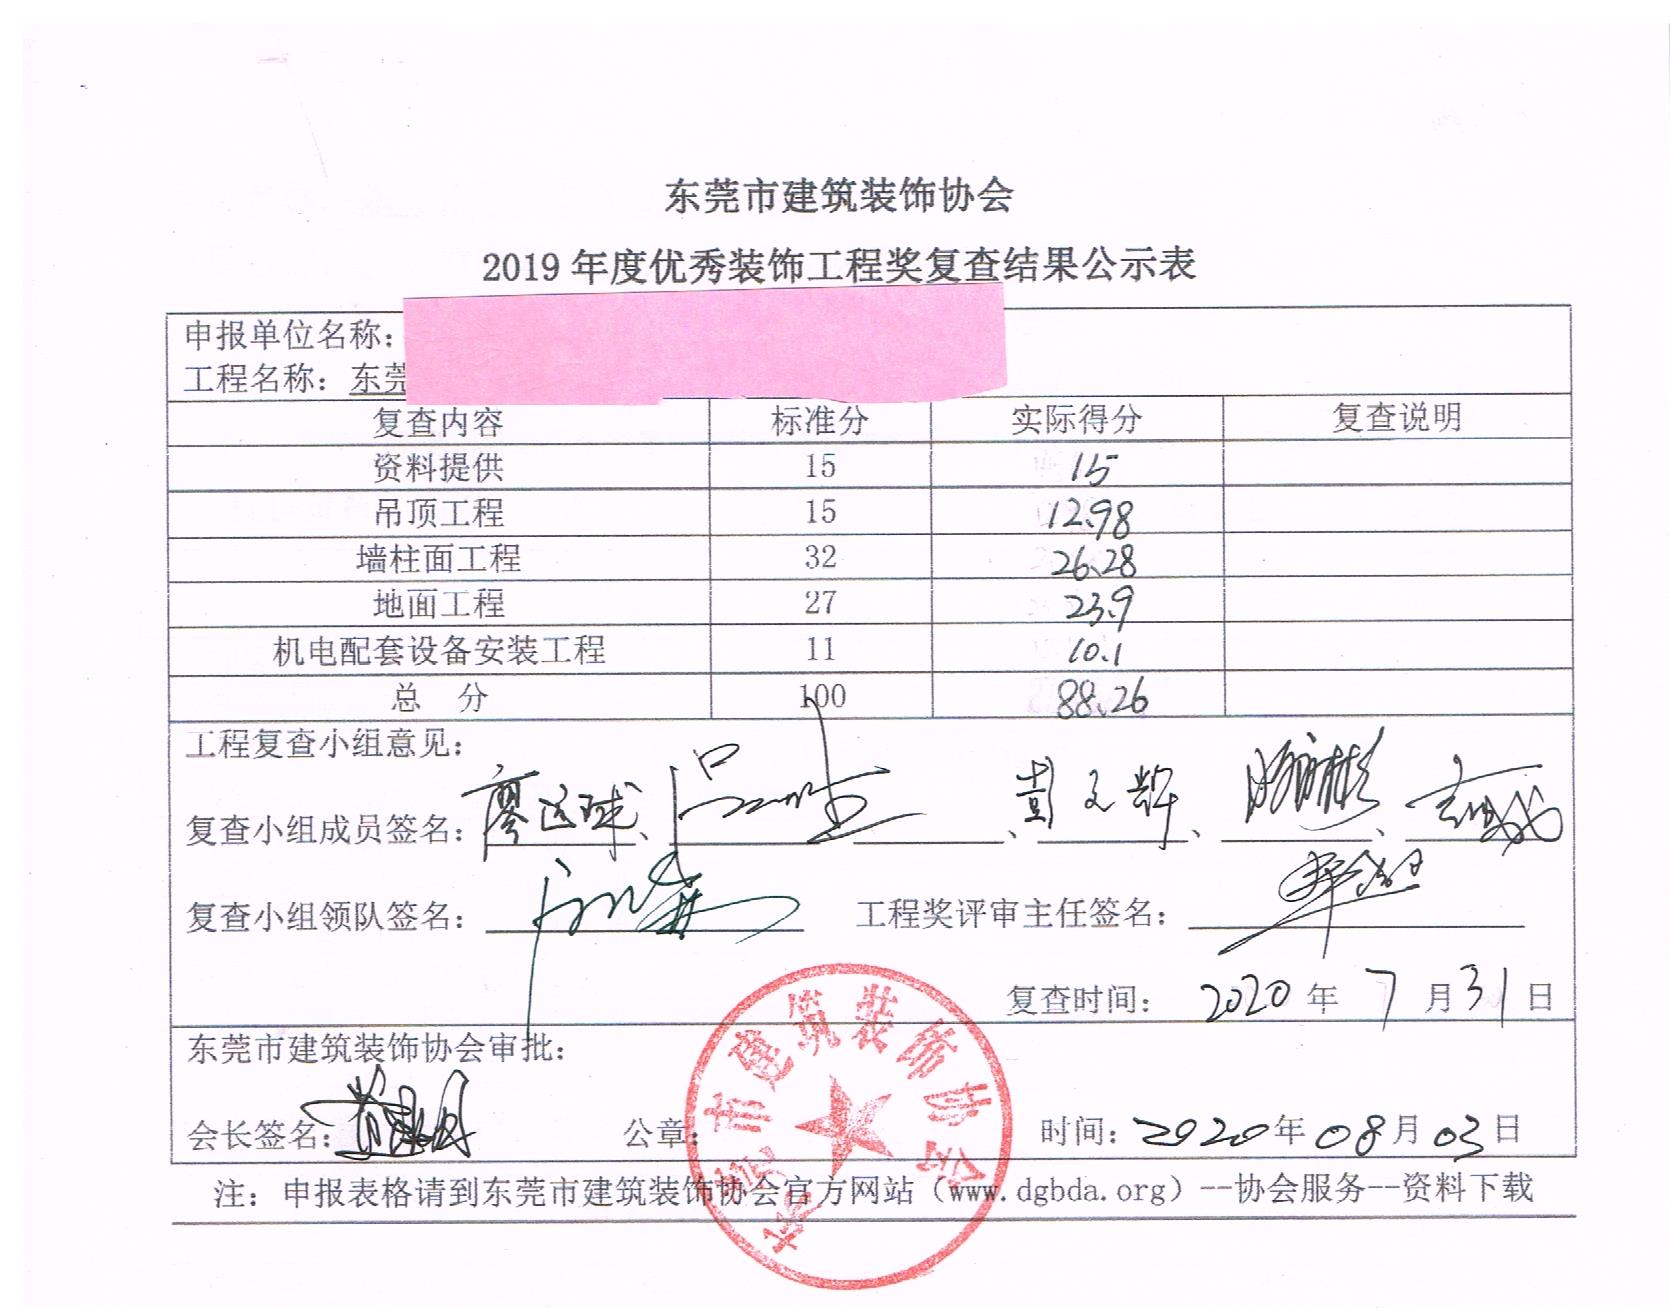 东莞市建筑装饰协会
2019 年度优秀装饰工程奖复查结果公示表
申报单位名称:
工程名称: 东莞
复查内容 标准分 实际得分 复查说明
资料提供 15 15
吊顶工程 15 12.98
墙柱面工程 32 26.28
地面工程 27 23.9
机电配套设备安装工程 11 10.1
总 分 100 88.26
工程复查小组意见:
复查小组成员签名: 、 、彭文辉、 、
复查小组领队签名: 工程奖评审主任签名:
复查时间: 2020 年 7 月 31 日
东莞市建筑装饰协会审批:
会长签名: 公章: 时间: 2020 年 08 月 03 日
东莞市建筑装饰协会
注: 申报表格请到东莞市建筑装饰协会官方网站（www.dgbda.org）--协会服务--资料下载